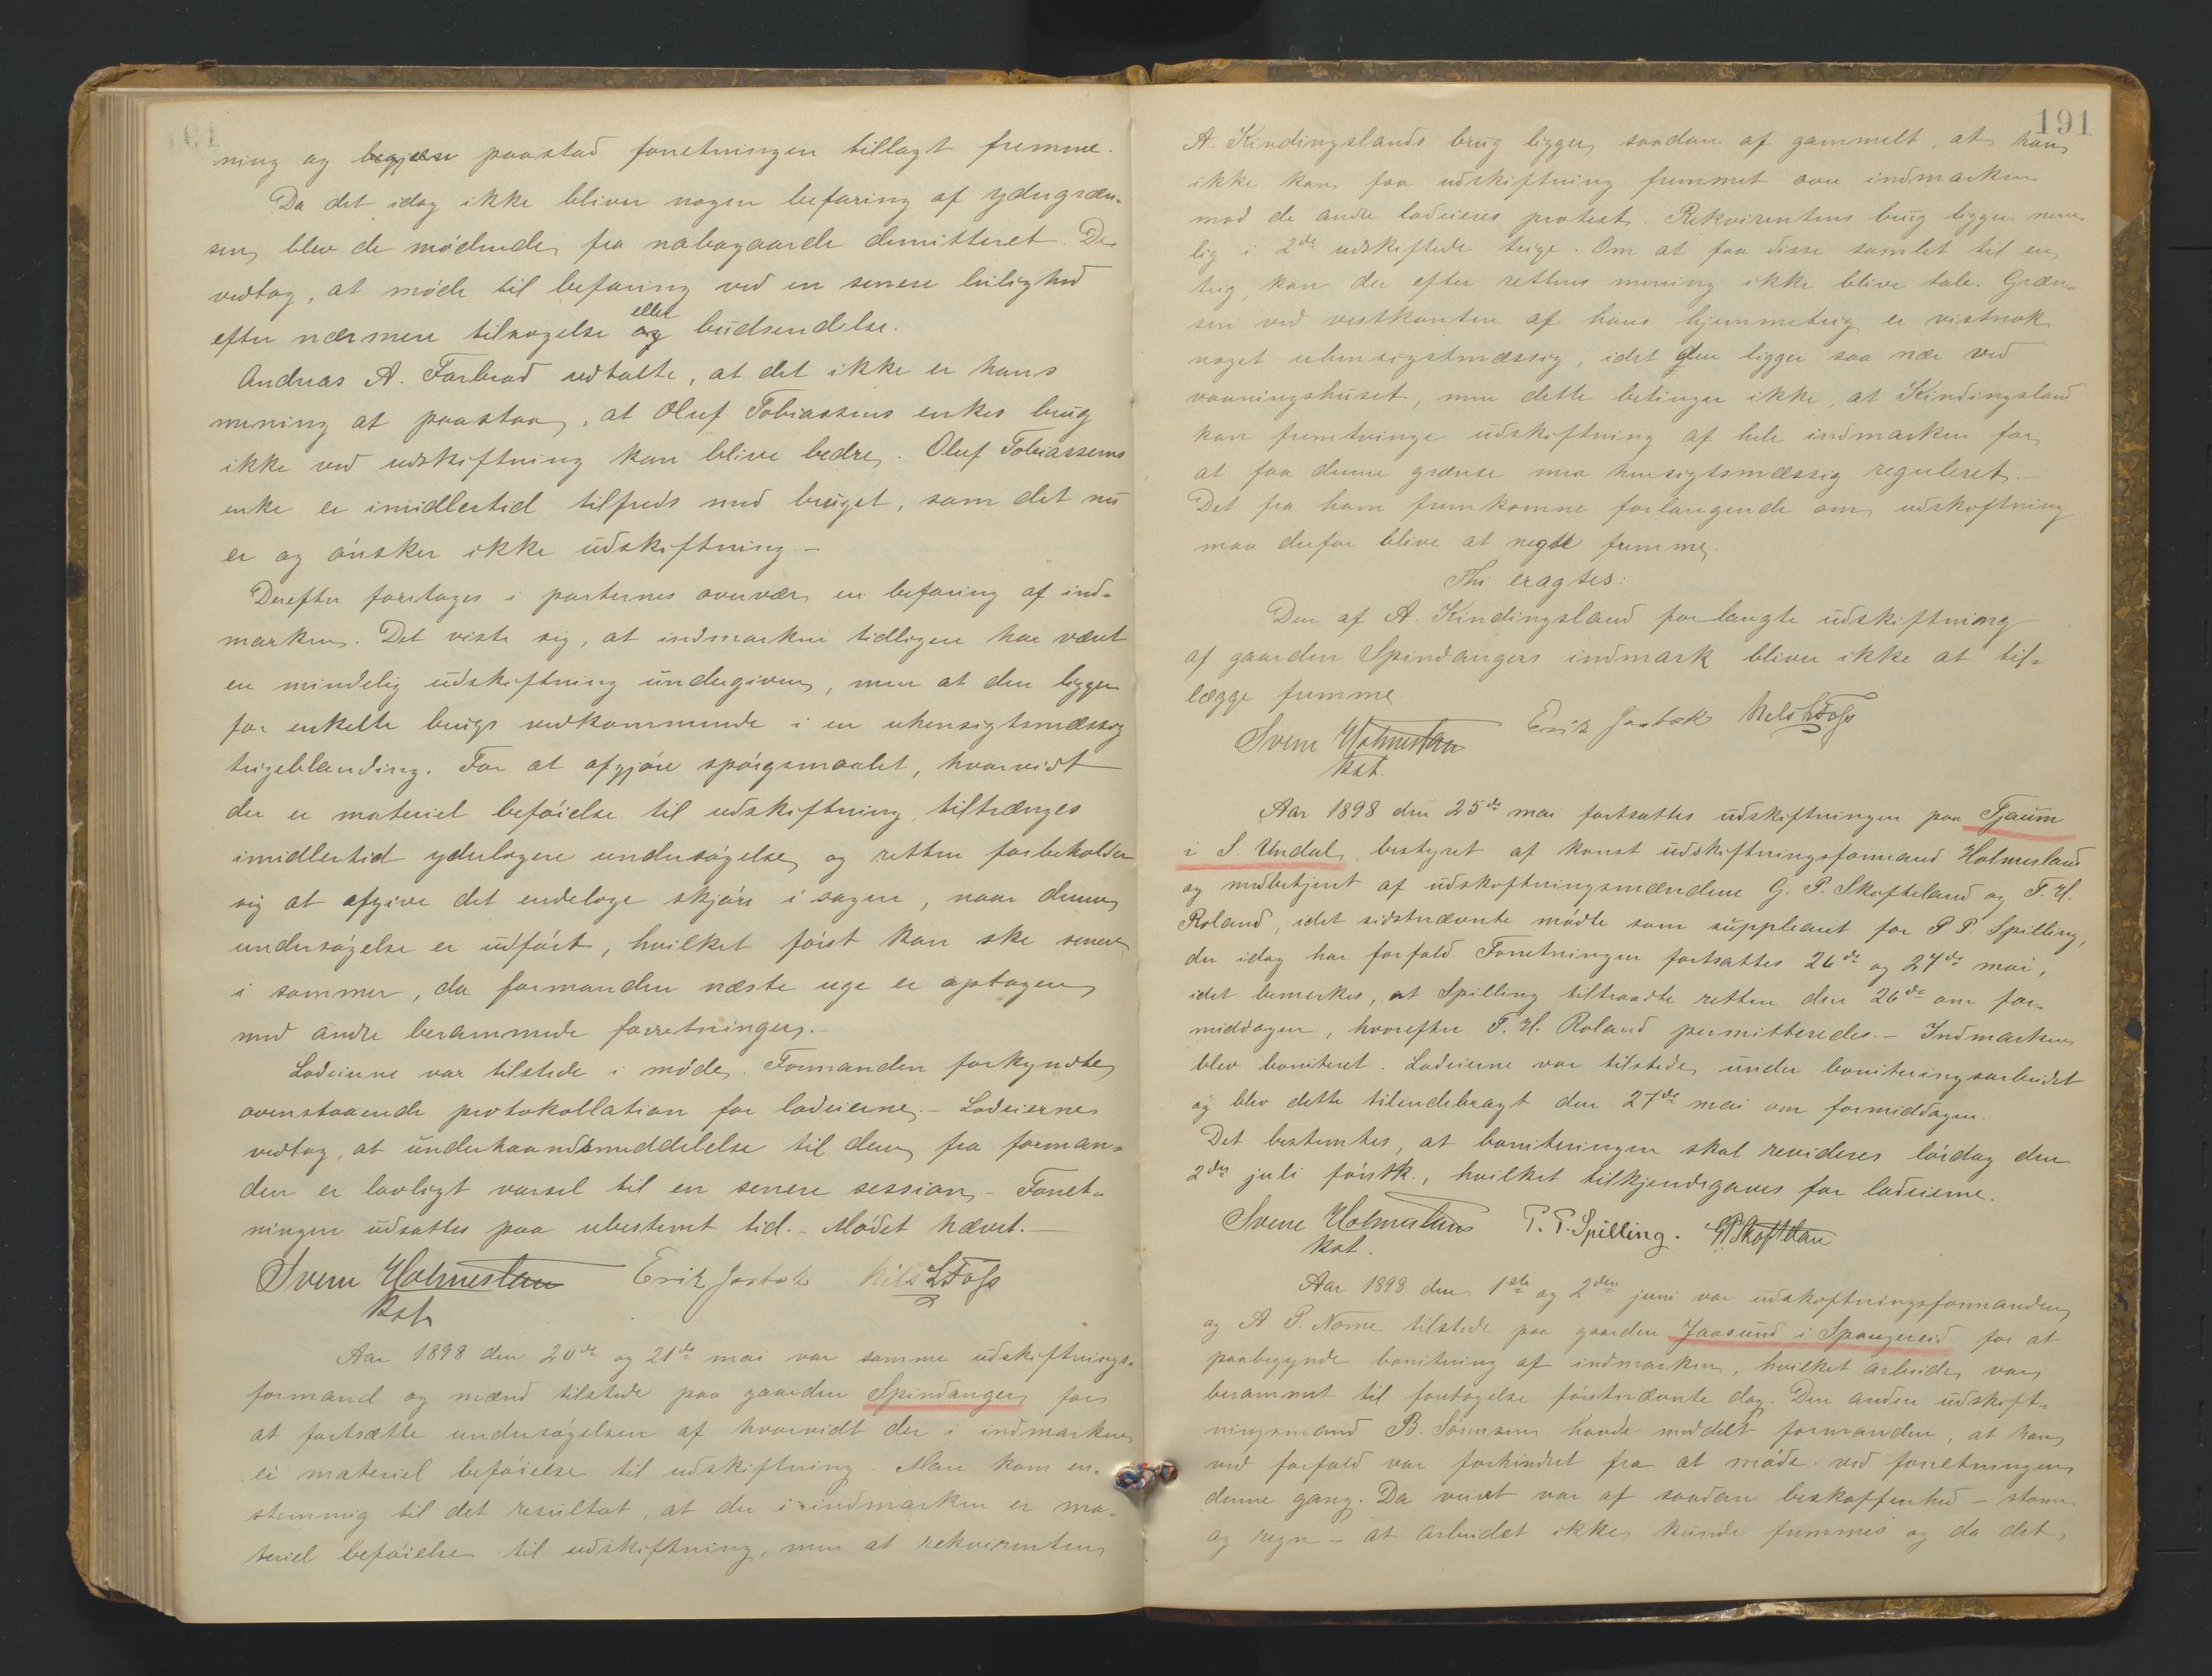 ning og begjære paastod forretningen tillagt fremme.
Da det idag ikke bliver nogen befaring af ydergræn-
sen, blev de mødende fra nabogaarde demitteret. De
vedtog, at møde til befaring ved en senere leilighed
efter nærmere tilsigelse og eller budsendelse.
Andreas A. Farbrod udtalte, at det ikke er hans
mening at paastaa, at Oluf Tobiassens enkes brug
ikke ved udskiftning kan blive bedre. Oluf Tobiassens
enke er imidlertid tilfreds med bruget, som det nu
er og ønsker ikke udskiftning.-
Derefter foretoges i parternes overvær en befaring af ind-
marken. Det viste sig, at indmarken tidligere har været
en mindelig udskiftning undergiven, men at den ligger
for enkelte brugs vedkommende i en uhensigtsmæssig
teigeblanding. For at afgjøre spørgsmaalet, hvorvidt
der er materiel beføielse til udskiftning, tiltrænges
imidlertid yderligere undersøgelse, og retten forbeholder
sig at afgive det endelige skjøn i sagen, naar denne
undersøgelse er udført, hvilket først kan ske senere
i sommer, da formanden næste uge er optagen
med andre berammede forretninger.-
Lodeierne var tilstede i møde. Formanden forkyndte
ovenstaaende protokollation for lodeierne.- Lodeierne
vedtog, at underhaandsmeddelelse til dem fra forman-
den er lovligt varsel til en senere session.- Forret-
ningen udsattes paa ubestemt tid.- Mødet hævet.-
Svein Holmeslan Erik Jaabæk Nils L Foss
Kst.
Aar 1898 den 20de og 21de mai var samme udskiftnings-
formand og mænd tilstede paa gaarden Spindanger for
at fortsætte undersøgelsen af hvorvidt der i indmarken
er materiel beføielse til udskiftning. Man kom en-
stemmig til det resultat, at der i indmarken er ma-
teriel beføielse til udskiftning, men at rekvirenten
191
A. Kindingslands brug ligger saadan af gammelt, at han
ikke kan faa udskiftning fremmet over indmarken
mod de andre lodeieres protest. Rekvirentens brug ligger nem-
lig i 2de udskiftede teige. Om at faa disse samlet til en
teig, kan der efter rettens mening ikke blive tale. Græn-
sen ved vestkanten af hans hjemmeteig er vistnok
noget uhensigtsmæssig, idet den ligger saa nær ved
vaaningshuset, men dette betinger ikke, at Kindingsland
kan fremtvinge udskiftning af hele indmarken for
at faa denne grænse mer hensigtsmæssig reguleret.-
Det fra ham fremkomne forlangende om udskiftning
maa derfor blive at negte fremme.
Thi eragtes:
Den af A. Kindingsland forlangte udskiftning
af gaarden Spindangers indmark bliver ikke at til-
lægge fremme.
Svein Holmeslan Erik Jaabæk Nils L Foss
Kst.
Aar 1898 den 25de mai fortsattes udskiftningen paa Tjaum
i S. Undal, bestyret af konst udskiftningsformand Holmesland
og medbetjent af udskiftningsmændene G. P. Skofteland og T. H.
Roland, idet sidstnævnte mødte som suppleant for P. P. Spilling,
der idag har forfald. Forretningen fortsattes 26de og 27de mai,
idet bemerkes, at Spilling tiltraadte retten den 26de om for-
middagen, hvorefter T. H. Roland permitteredes.- Indmarken
blev boniteret. Lodeierne var tilstede under boniteringsarbeidet
og blev dette tilendebragt den 27de mai om formiddagen.
Det bestemtes, at boniteringen skal revideres lørdag den
2den juli førstk., hvilket tilkjendegaves for lodeierne.
Svein Holmeslan P. P. Spilling. GP Skofteland
Kst.
Aar 1898 den 1ste og 2den juni var udskiftningsformanden
og A. P. Nome tilstede paa gaarden Jaasund i Spangereid for at
paabegynde bonitering af indmarken, hvilket arbeide var
berammet til foretagelse førstnævnte dag. Den anden udskift-
ningsmand B. Sørensen havde meddelt formanden, at han
ved forfald var forhindret fra at møde ved forretningen
denne gang. Da veiret var af saadan beskaffenhed - storm
og regn - at arbeidet ikke kunde fremmes og da det